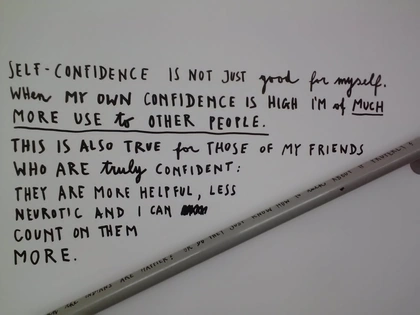 SELF-CONFIDENCE IS NOT JUST good for myself.
When MY OWN CONFIDENCE IS HIGH I'M of MUCH
MORE USE to OTHER PEOPLE.
THIS IS ALSO TRUE for THOSE OF MY FRIENDS
WHO ARE truly CONFIDENT:
THEY ARE MORE HELPFUL, LESS
NEUROTIC AND I CAN
COUNT ON THEM
MORE.